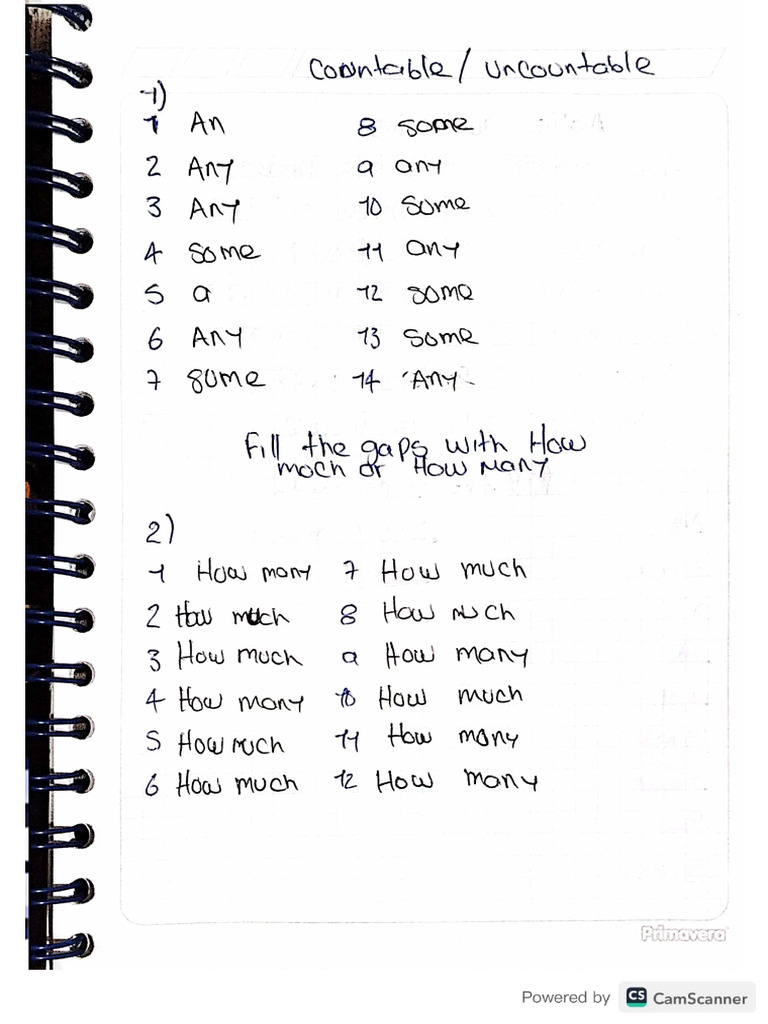 Countable / Uncountable
1)
1 An 8 some
2 Any 9 any
3 Any 10 some
4 some 11 any
5 a 12 some
6 Any 13 some
7 some 14 Any
Fill the gaps with How
moch or How Many
2)
1 How many 7 How much
2 How much 8 How much
3 How much 9 How many
4 How many 10 How much
5 How much 11 How many
6 How much 12 How many
Primavera
Powered by CS CamScanner